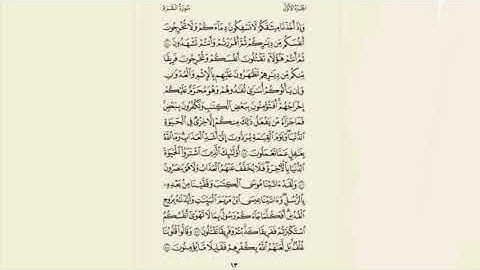 الجزء الأول
سورة البقرة
وَإِذْ أَخَذْنَا مِيثَٰقَكُمْ لَا تَسْفِكُونَ دِمَآءَكُمْ وَلَا تُخْرِجُونَ
أَنفُسَكُم مِّن دِيَٰرِكُمْ ثُمَّ أَقْرَرْتُمْ وَأَنتُمْ تَشْهَدُونَ
ثُمَّ أَنتُمْ هَٰٓؤُلَآءِ تَقْتُلُونَ أَنفُسَكُمْ وَتُخْرِجُونَ فَرِيقًا
مِّنكُم مِّن دِيَٰرِهِمْ تَظَٰهَرُونَ عَلَيْهِم بِٱلْإِثْمِ وَٱلْعُدْوَٰنِ
وَإِن يَأْتُوكُمْ أُسَٰرَىٰ تُفَٰدُوهُمْ وَهُوَ مُحَرَّمٌ عَلَيْكُمْ
إِخْرَاجُهُمْ أَفَتُؤْمِنُونَ بِبَعْضِ ٱلْكِتَٰبِ وَتَكْفُرُونَ بِبَعْضٍ
فَمَا جَزَآءُ مَن يَفْعَلُ ذَٰلِكَ مِنكُمْ إِلَّا خِزْىٌ فِى ٱلْحَيَوٰةِ
ٱلدُّنْيَا وَيَوْمَ ٱلْقِيَٰمَةِ يُرَدُّونَ إِلَىٰٓ أَشَدِّ ٱلْعَذَابِ وَمَا ٱللَّهُ
بِغَٰفِلٍ عَمَّا تَعْمَلُونَ أُو۟لَٰٓئِكَ ٱلَّذِينَ ٱشْتَرَوُا۟ ٱلْحَيَوٰةَ
ٱلدُّنْيَا بِٱلْءَاخِرَةِ فَلَا يُخَفَّفُ عَنْهُمُ ٱلْعَذَابُ وَلَا هُمْ يُنصَرُونَ
وَلَقَدْ ءَاتَيْنَا مُوسَى ٱلْكِتَٰبَ وَقَفَّيْنَا مِنۢ بَعْدِهِۦ
بِٱلرُّسُلِ وَءَاتَيْنَا عِيسَى ٱبْنَ مَرْيَمَ ٱلْبَيِّنَٰتِ وَأَيَّدْنَٰهُ بِرُوحِ
ٱلْقُدُسِ أَفَكُلَّمَا جَآءَكُمْ رَسُولٌۢ بِمَا لَا تَهْوَىٰٓ أَنفُسُكُمُ
ٱسْتَكْبَرْتُمْ فَفَرِيقًا كَذَّبْتُمْ وَفَرِيقًا تَقْتُلُونَ وَقَالُوا۟ قُلُوبُنَا
غُلْفٌۢ بَل لَّعَنَهُمُ ٱللَّهُ بِكُفْرِهِمْ فَقَلِيلًا مَّا يُؤْمِنُونَ
١٣